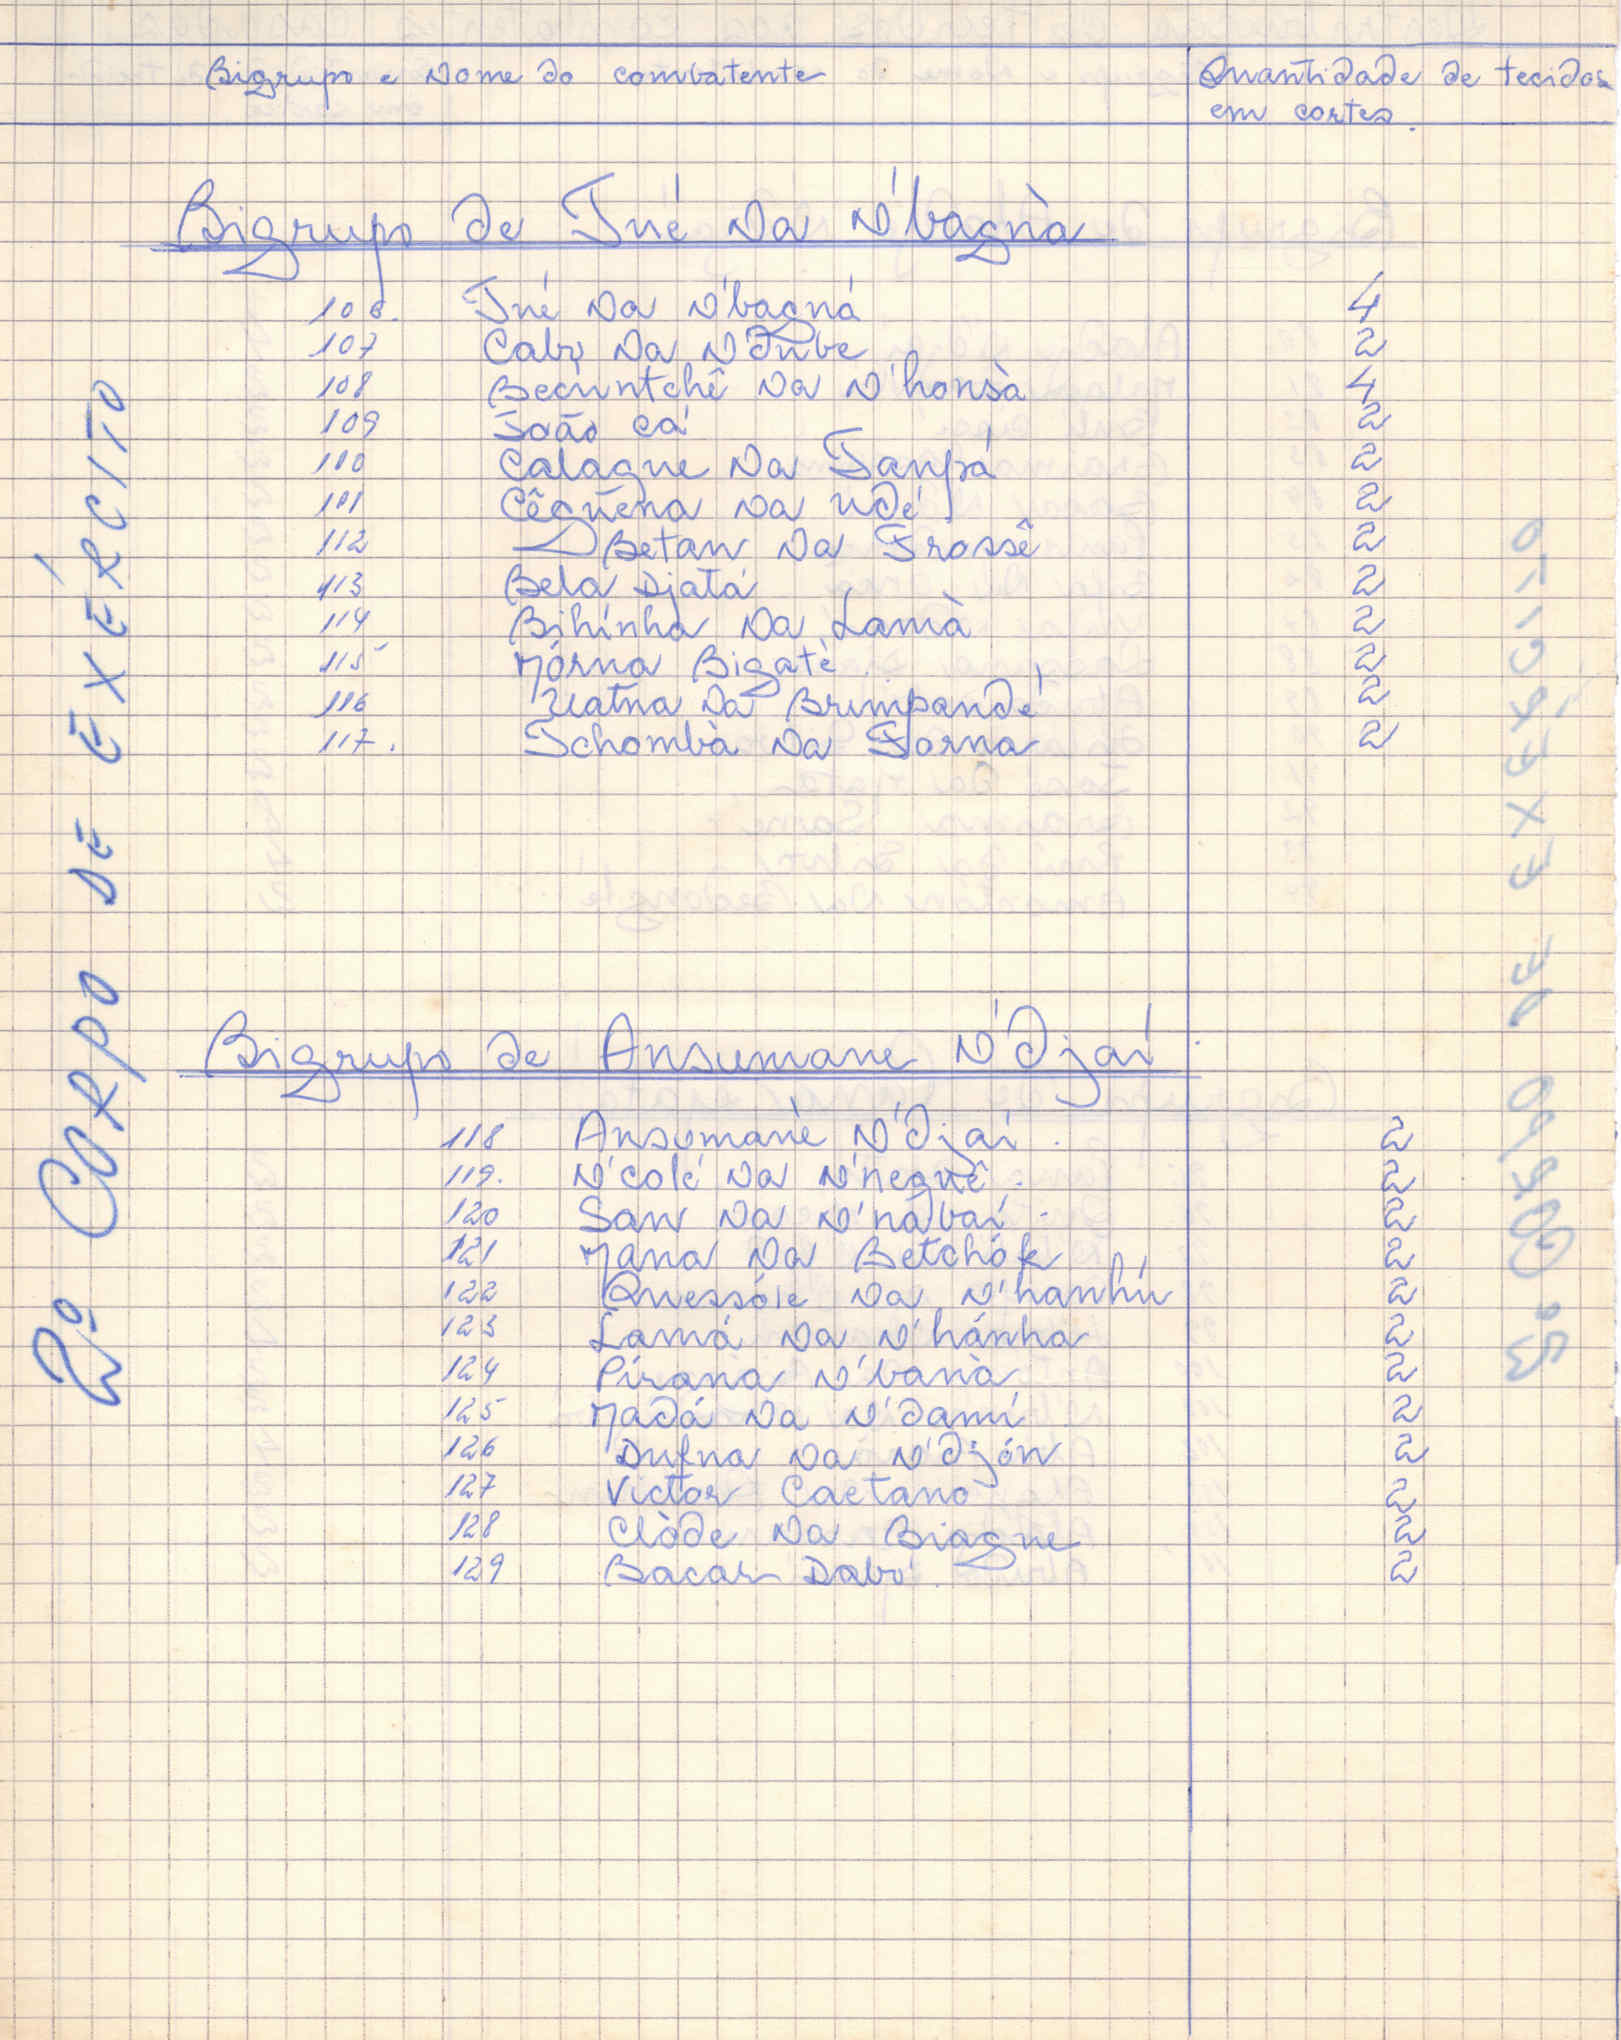 Bigrupo e Nome do combatente
Quantidade de tecidos
em cortes.
2º CORPO DE EXÉRCITO
Bigrupo de Tné Na N'bagnà
106. Tné Na N'bagná 4
107 Cabi Na N'Dube 2
108 Becuntchê Na N'honsà 4
109 João Cá 2
110 Calagne Na Tanpá 2
111 Cêquena Na Udé 2
112 Betan Na Frossê 2
113 Bela Djatá 2
114 Bihinha Na Lamà 2
115 Mórna Bigatè 2
116 Uatna Na Brumpandé 2
117. Tchombà Na Forna 2
Bigrupo de Ansumane N'Djaí
118 Ansumanè N'Djaí. 2
119. N'colé Na N'neguê. 2
120 San Na N'nábaí. 2
121 Mana Na Betchófe 2
122 Quessóie Na N'hanhú 2
123 Lamá Na N'hánha 2
124 Pírana N'banà 2
125 Madá Na N'damí 2
126 Dufna Na N'Djón 2
127 Victor Caetano 2
128 Clòde Na Biagne 2
129 Bacar Dabó. 2